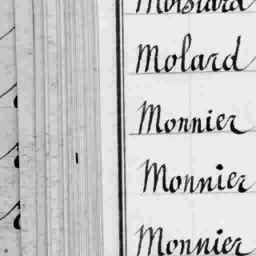 Molard
Monnier
Monnier
Monnier